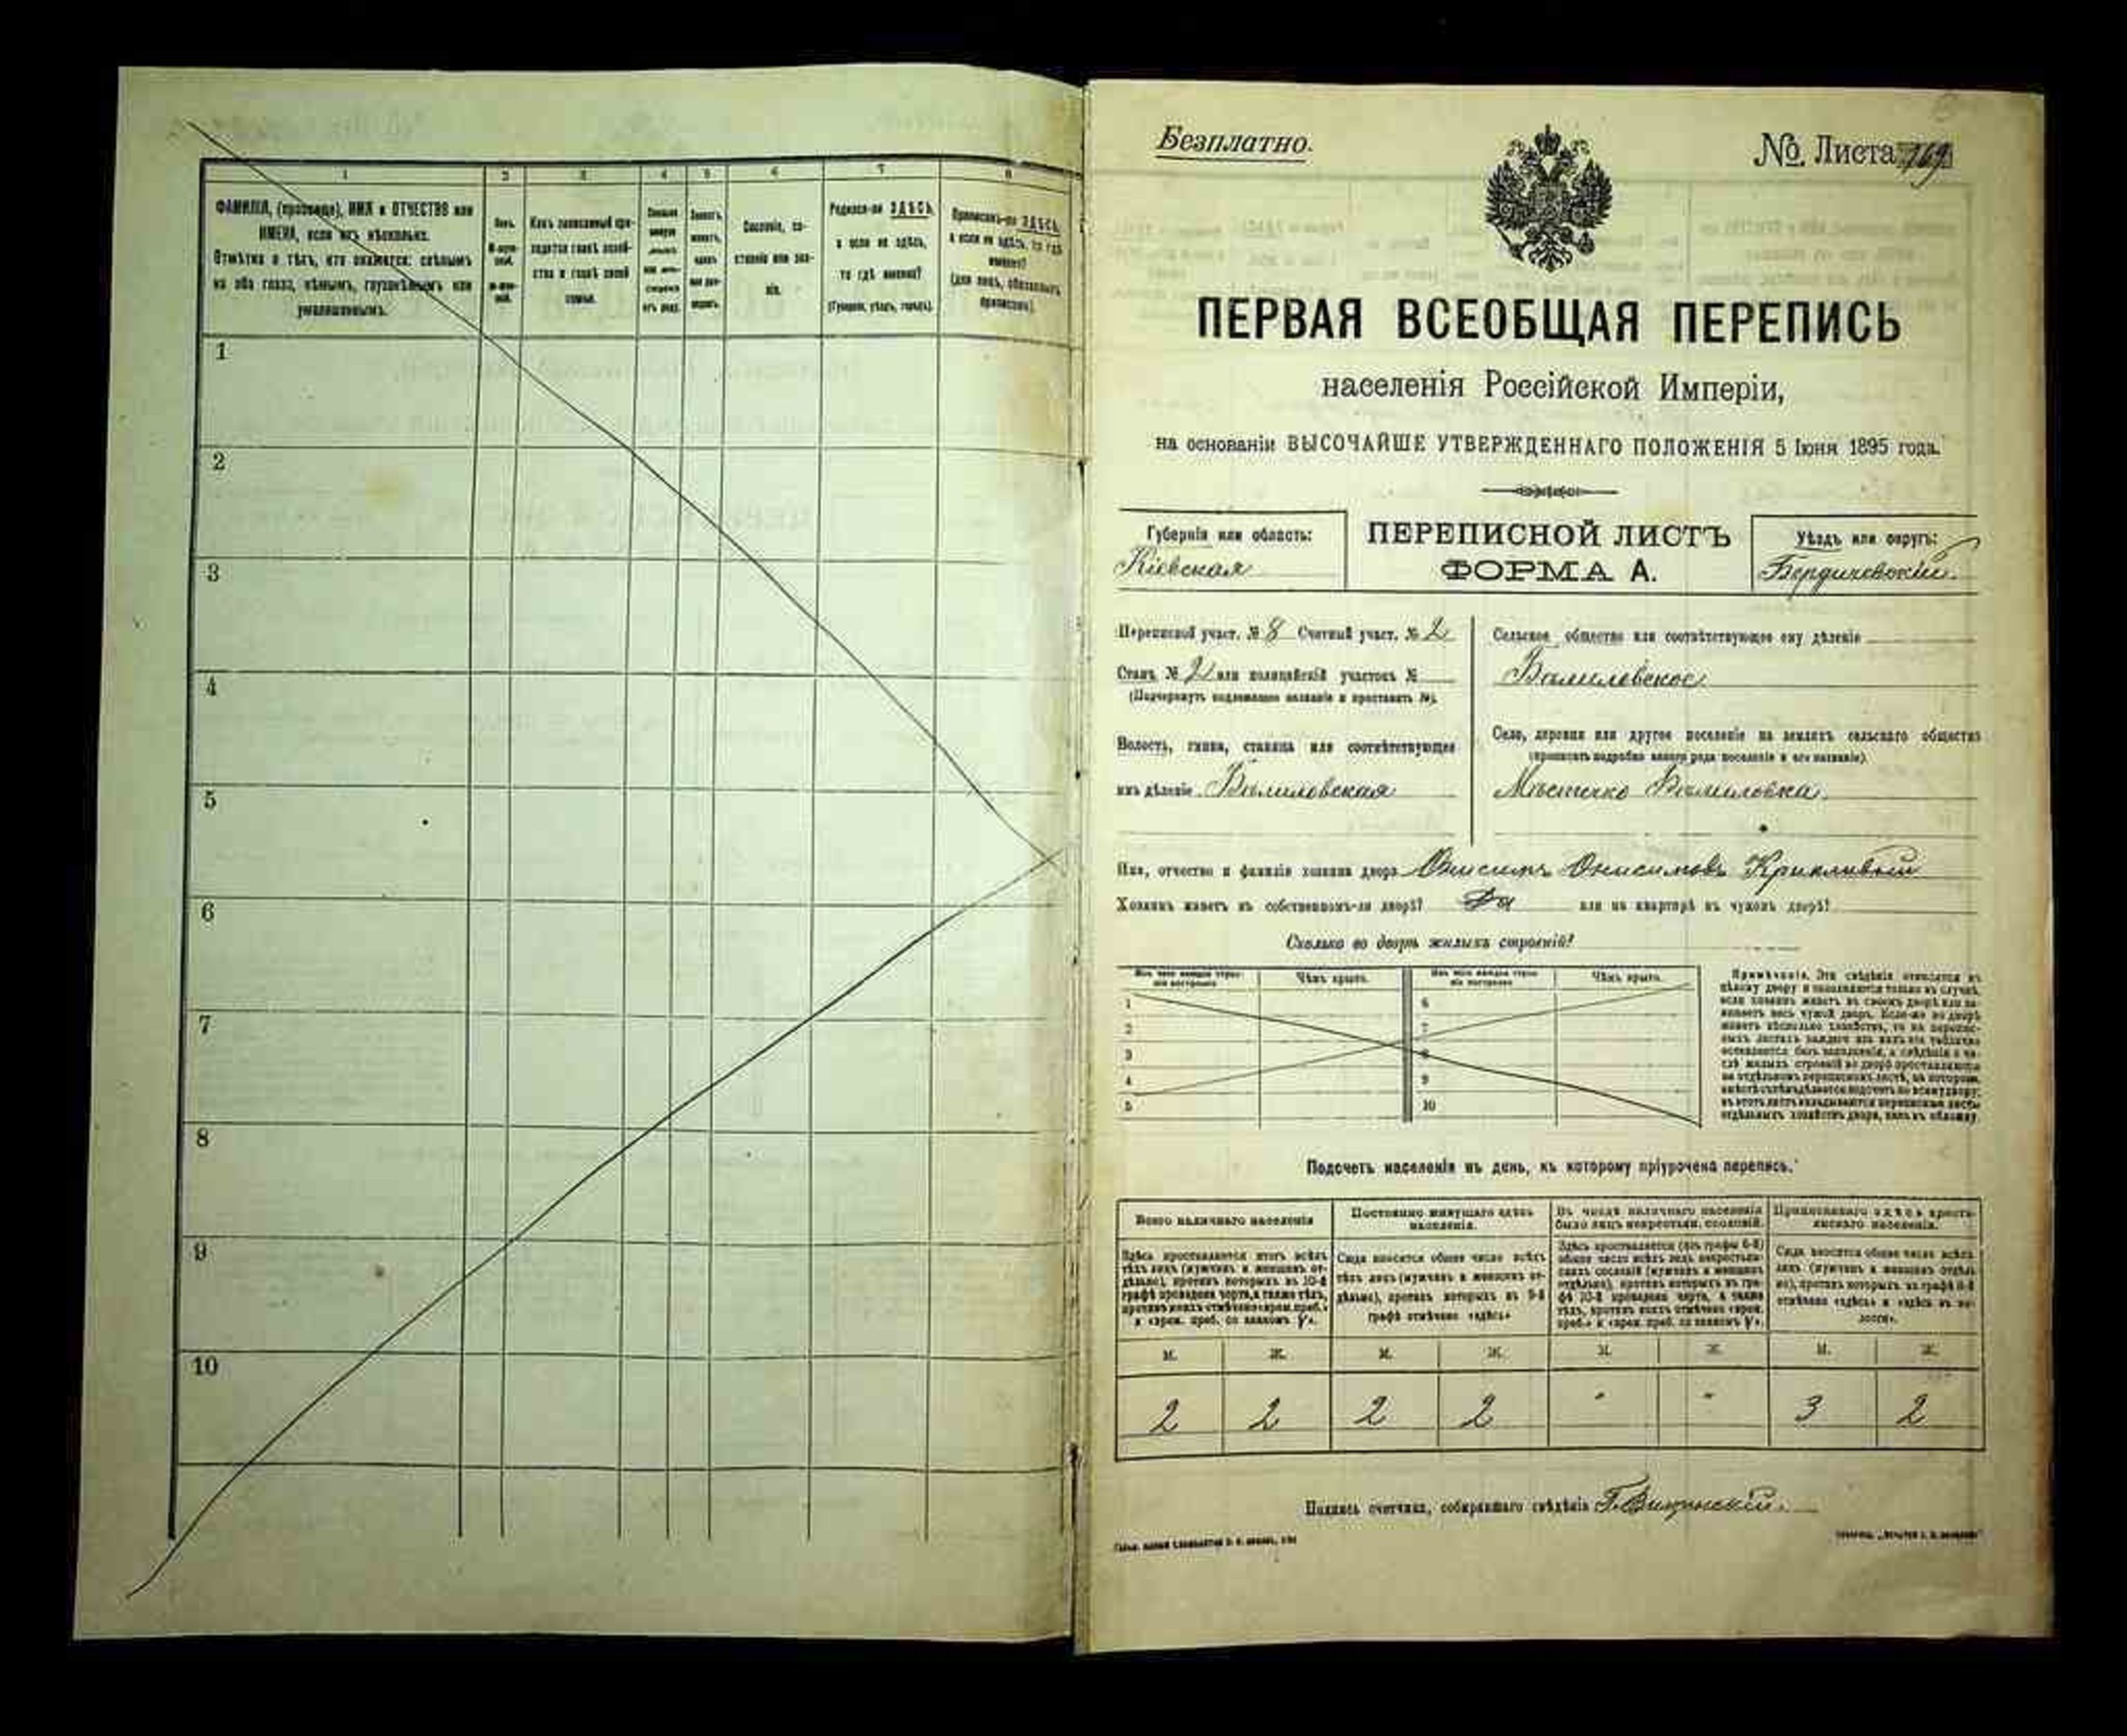 1 2 3 4 5 6 7 8
ФАМИЛІЯ, (прозвище), ИМЯ и ОТЧЕСТВО или
ИМЕНА, если ихъ нѣсколько.
Отмѣтка о тѣхъ, кто окажется: слѣпымъ
на оба глаза, нѣмымъ, глухонѣмымъ или
умалишеннымъ.
Полъ.
Какъ записанный при-
ходится главѣ хозяй-
ства и главѣ своей
семьи.
Сословіе, со-
стояніе или зва-
ніе.
Родился-ли ЗДѢСЬ,
а если не здѣсь,
то гдѣ именно?
(Губернія, уѣздъ, городъ).
Приписанъ-ли ЗДѢСЬ,
а если не здѣсь, то гдѣ
именно?
(для лицъ, обязанныхъ
припискою).
1
2
3
4
5
6
7
8
9
10
Безплатно.
№ Листа 169
ПЕРВАЯ ВСЕОБЩАЯ ПЕРЕПИСЬ
населенія Россійской Имперіи,
на основаніи ВЫСОЧАЙШЕ УТВЕРЖДЕННАГО ПОЛОЖЕНІЯ 5 Іюня 1895 года.
Губернія или область:
Кіевская
ПЕРЕПИСНОЙ ЛИСТЪ
ФОРМА А.
Уѣздъ или округъ:
Бердичевскій.
Переписной участ. № 8 Счетный участ. № 2
Станъ № 2 или полицейскій участокъ №
(Подчеркнуть подлежащее названіе и проставить №).
Волость, гмина, станица или соотвѣтствующее
имъ дѣленіе
Сельское общество или соотвѣтствующее ему дѣленіе
Село, деревня или другое поселеніе на земляхъ сельскаго общества
(прописать подробно какого рода поселеніе и его названіе).
Мѣстечко
Имя, отчество и фамилія хозяина двора Онисимъ Онисимовъ Крикливый
Хозяинъ живетъ въ собственномъ-ли дворѣ? Да или на квартирѣ въ чужомъ дворѣ?
Сколько во дворѣ жилыхъ строеній?
Изъ чего каждое строе-
ніе построено
Чѣмъ крыто.
Изъ чего каждое строе-
ніе построено
Чѣмъ крыто.
1 6
2 7
3 8
4 9
5 10
Примѣчаніе. Эти свѣдѣнія относятся къ
цѣлому двору и заполняются только въ случаѣ,
если хозяинъ живетъ въ своемъ дворѣ или за-
нимаетъ весь чужой дворъ. Если-же во дворѣ
живетъ нѣсколько хозяйствъ, то на перепис-
ныхъ листахъ каждаго изъ нихъ эта табличка
оставляется безъ заполненія, а свѣдѣнія о чи-
слѣ жилыхъ строеній во дворѣ проставляются
на отдѣльномъ переписномъ листѣ, на которомъ
вмѣстѣ съ тѣмъ дѣлается подсчетъ по всему двору;
въ этотъ листъ вкладываются переписные листы
отдѣльныхъ хозяйствъ двора, какъ въ обложку.
Подсчетъ населенія въ день, къ которому пріурочена перепись.
Всего наличнаго населенія
Постоянно живущаго здѣсь
населенія.
Въ числѣ наличнаго населенія
было лицъ некрестьян. сословій.
Приписаннаго здѣсь кресть-
янскаго населенія.
Здѣсь проставляется итогъ всѣхъ
тѣхъ лицъ (мужчинъ и женщинъ от-
дѣльно), противъ которыхъ въ 10-й
графѣ проведена черта, а также тѣхъ,
противъ коихъ отмѣчено «врем. преб.»
и «врем. преб. со знакомъ V».
Сюда вносится общее число всѣхъ
тѣхъ лицъ (мужчинъ и женщинъ от-
дѣльно), противъ которыхъ въ 9-й
графѣ отмѣчено «здѣсь»
Здѣсь проставляется (изъ графы 6-й)
общее число всѣхъ лицъ некрестьян-
скихъ сословій (мужчинъ и женщинъ
отдѣльно), противъ которыхъ въ гра-
фѣ 10-й проведена черта, а также
тѣхъ, противъ коихъ отмѣчено «врем.
преб.» и «врем. преб. со знакомъ V».
Сюда вносится общее число всѣхъ
лицъ (мужчинъ и женщинъ отдѣль-
но), противъ которыхъ въ графѣ 8-й
отмѣчено «здѣсь» и «здѣсь въ во-
лости».
М. Ж. М. Ж. М. Ж. М. Ж.
2 2 2 2 " " 3 2
Подпись счетчика, собиравшаго свѣдѣнія